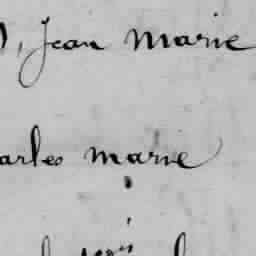 , Jean Marie
arles Marie